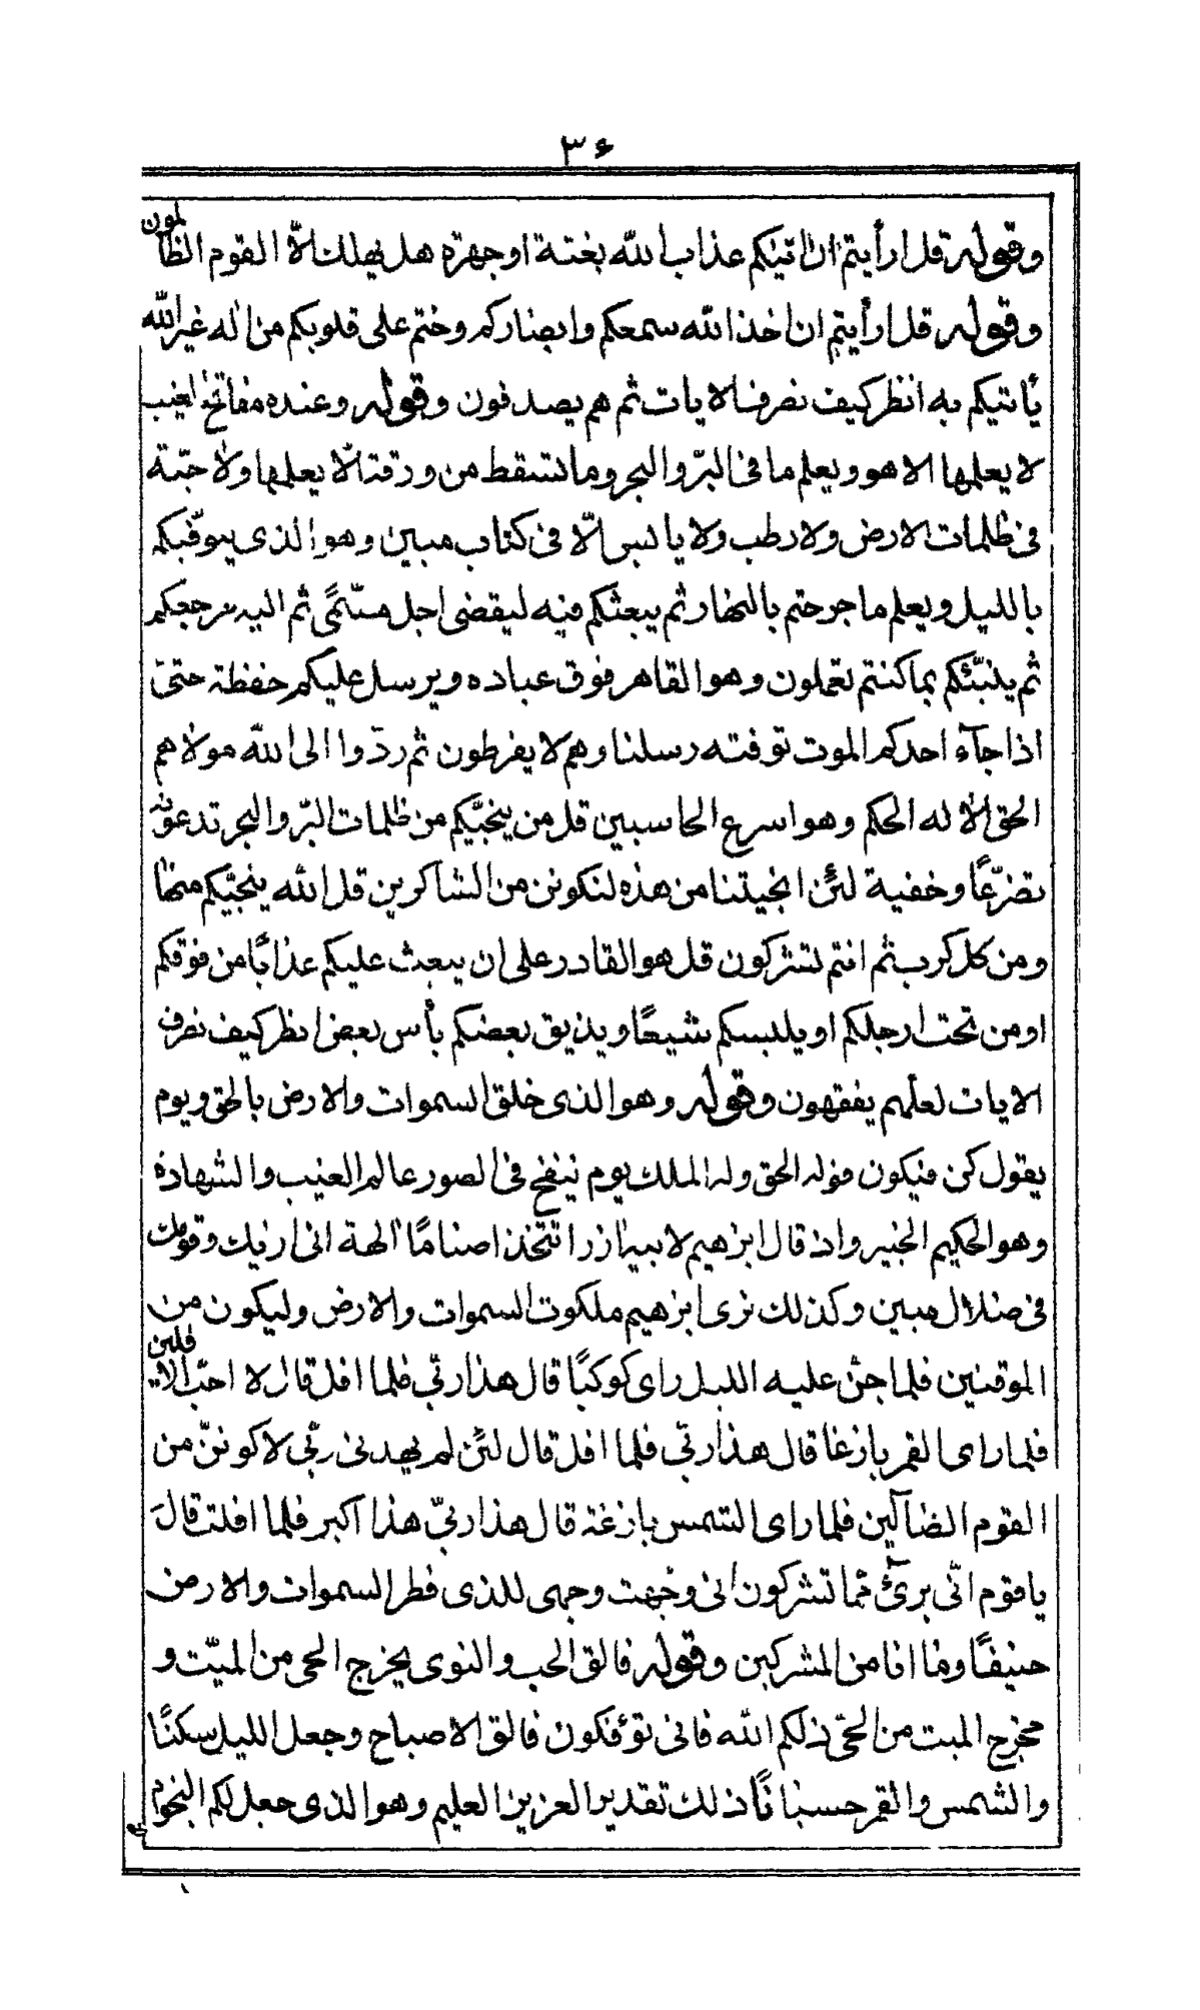 ٣٤
وقوله قل ارأيتم ان اتيكم عذاب الله بغتة او جهرة هل يهلك الّا القوم الظالمون
وقوله قل ارأيتم ان اخذ الله سمعكم وابصاركم وختم على قلوبكم من اله غير الله
يأتيكم به انظر كيف نصرف الايات ثم هم يصدفون وقوله وعنده مفاتح الغيب
لا يعلمها الا هو ويعلم ما فى البرّ والبحر وما تسقط من ورقة الّا يعلمها ولا حبّة
فى ظلمات الارض ولا رطب ولا يابس الّا فى كتاب مبين وهو الذى يتوفّيكم
بالليل ويعلم ما جرحتم بالنهار ثم يبعثكم فيه ليقضى اجل مسمّىً ثم اليه مرجعكم
ثم ينبّئكم بما كنتم تعملون وهو القاهر فوق عباده ويرسل عليكم حفظة حتىّ
اذا جآء احدكم الموت توفته رسلنا وهم لا يفرطون ثم ردّوا الى الله مولاهم
الحق الا له الحكم وهو اسرع الحاسبين قل من ينجّيكم من ظلمات البرّ والبحر تدعونه
تضرّعًا وخفية لئن انجيتنا من هذه لنكونن من الشاكرين قل الله ينجّيكم منها
ومن كل كرب ثم انتم تشركون قل هو القادر على ان يبعث عليكم عذابًا من فوقكم
او من تحت ارجلكم او يلبسكم شيعًا ويذيق بعضكم بأس بعض انظر كيف نصرف
الايات لعلهم يفقهون وقوله وهو الذى خلق السموات والارض بالحق ويوم
يقول كن فيكون قوله الحق وله الملك يوم ينفخ فى الصور عالم الغيب والشهادة
وهو الحكيم الخبير واذ قال ابرهيم لابيه ازر اتتخذ اصنامًا الهة انى اريك وقومك
فى ضلال مبين وكذلك نرى ابرهيم ملكوت السموات والارض وليكون من
الموقنين فلما جنّ عليه الليل راى كوكبًا قال هذا ربّى فلما افل قال لا احبّ الافلين
فلما راى القمر بازغا قال هذا ربّى فلما افل قال لئن لم يهدنى ربّى لاكوننّ من
القوم الضآلّين فلما راى الشمس بازغة قال هذا ربّى هذا اكبر فلما افلت قالَ
يا قوم انّى برىٓئ مما تشركون انى وجّهت وجهى للذى فطر السموات والارض
حنيفًا وما انا من المشركين وقوله فالق الحب والنوى يخرج الحى من الميّت و
مخرج الميت من الحىّ ذلكم الله فانى تؤفكون فالق الاصباح وجعل الليل سكنًا
والشمس والقمر حسبانًا ذلك تقدير العزيز العليم وهو الذى جعل لكم النجوم